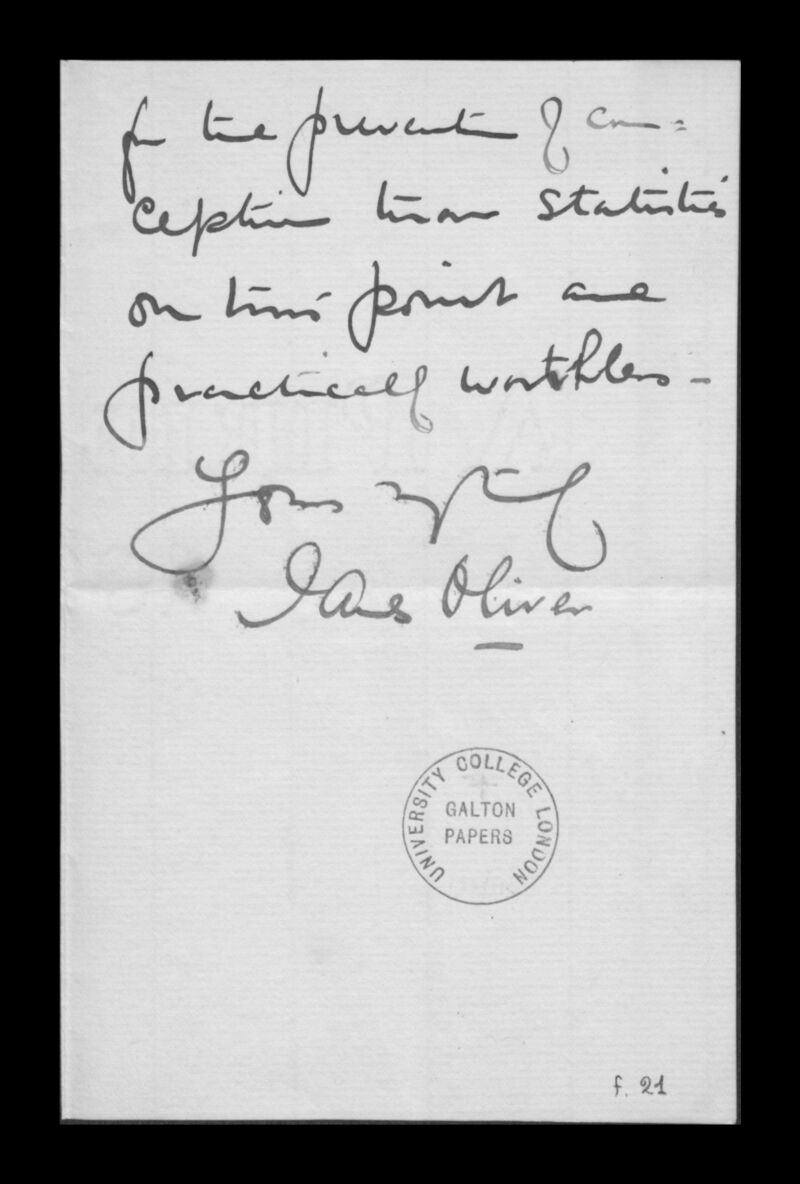 for the prevention of con=
ception than statistics
on this point are
practically worthless -
Yours
James Oliver
UNIVERSITY COLLEGE LONDON
GALTON
PAPERS
f. 21